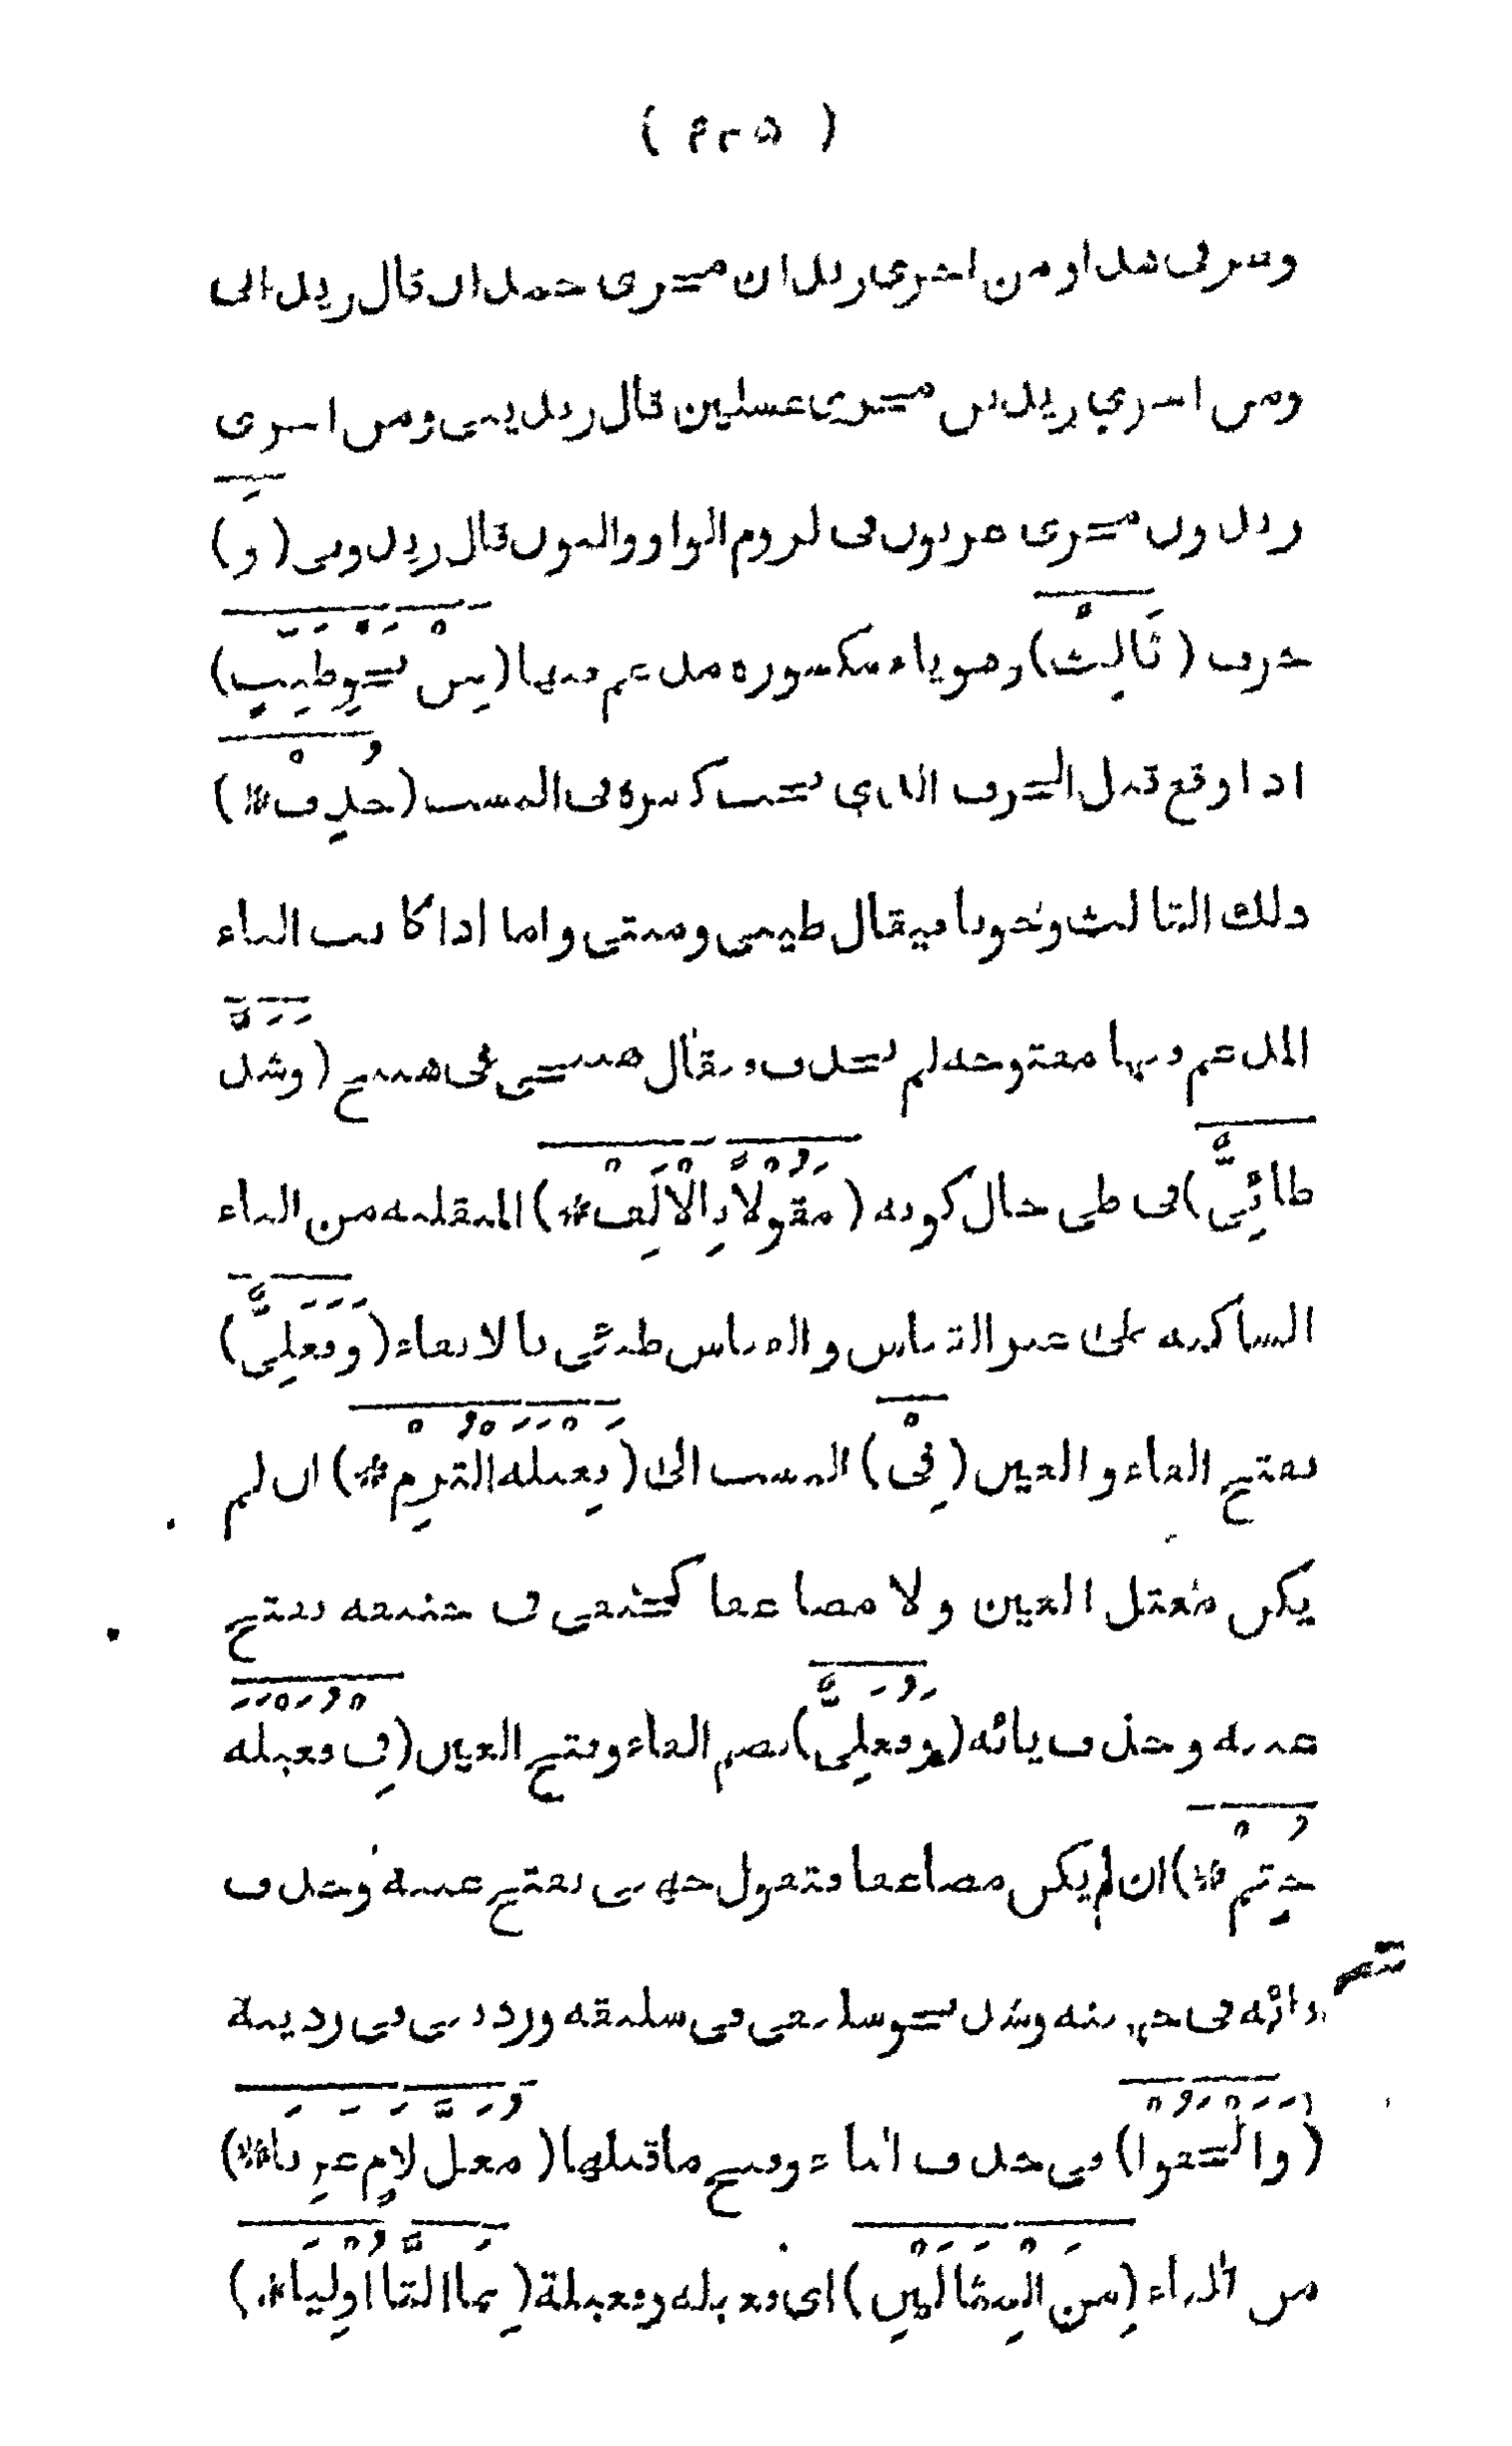 ( ٤٢٥ )
ونسرفى هذا ومن اجرى زيدان مجرى حمدان قال زيدانى
ومن اجرى زيدين مجرى غسلين قال زيدينى ومن اجرى
زيدون مجرى عربون فى لزوم الواو والنون قال زيدونى (وَ)
حرف (ثَالِثْ) وهو ياء مكسورة مدغم فيها (مِنْ نَحْوِ طَيِّبٍ)
اذا وقع قبل الحرف الذى يجب كسره فى النسب (حُذِفْ*)
ذلك الثالث وجوبا فيقال طيبى وميتى واما اذا كانت الياء
المدغم فيها مفتوحة لم تحذف ويقال هبيخى فى هبيخ (وَشَذَّ
طَائِيٌّ) فى طى حال كونه (مَقُوْلًا بِالْاَلِفْ*) المنقلبة من الياء
الساكنة على غير القياس والقياس طيئى بالابقاء (وَفَعَلِيٌّ)
بفتح الفاء والعين (فِىْ) النسب الى (فَعِيْلَةَ الْتُزِمْ*) ان لم
يكن معتل العين ولا مضاعفا كحنفى فى حنيفة بفتح
عينه وحذف يائه (وَفُعَلِيٌّ) بضم الفاء وفتح العين (فِى فُعَيْلَةَ
حُتِمْ*) ان لم يكن مضاعفا فتقول جهنى بفتح عينه وحذف
يائه فى جهينة وشذ نحو سليقى فى سليقة وردينى فى ردينة
(وَاَلْحَقُوْا) فى حذف الياء وفتح ماقبلها (مُعَلَّ لَامٍ عَرِيَا*)
من التاء (مِنَ الْمِثَالَيْنِ) اى فعيلة وفعيلة (بِمَا التَّا اُوْلِيَا*)